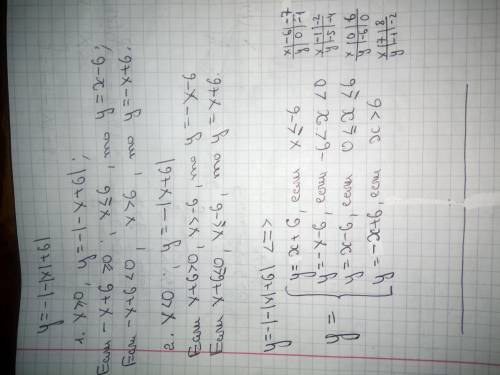 y=-|-|x|+6|
1. x≥0, y=-|-x+6|;
Если -x+6≥0, x≤6, то y=x-6;
Если -x+6<0, x>6, то y=-x+6.
2. x<0; y=-|x+6|
Если x+6>0, x>-6, то y=-x-6
Если x+6≤0, x≤-6, то y=x+6.
y=-|-|x|+6| <=>
y = { y=x+6, если x≤-6
y=-x-6, если -6<x<0
y=x-6, если 0≤x≤6
y=-x+6, если x>6
x|-6|-7
y|0|-1
x|-1|-2
y|-5|-4
x|0|6
y|-6|0
x|7|8
y|-1|-2